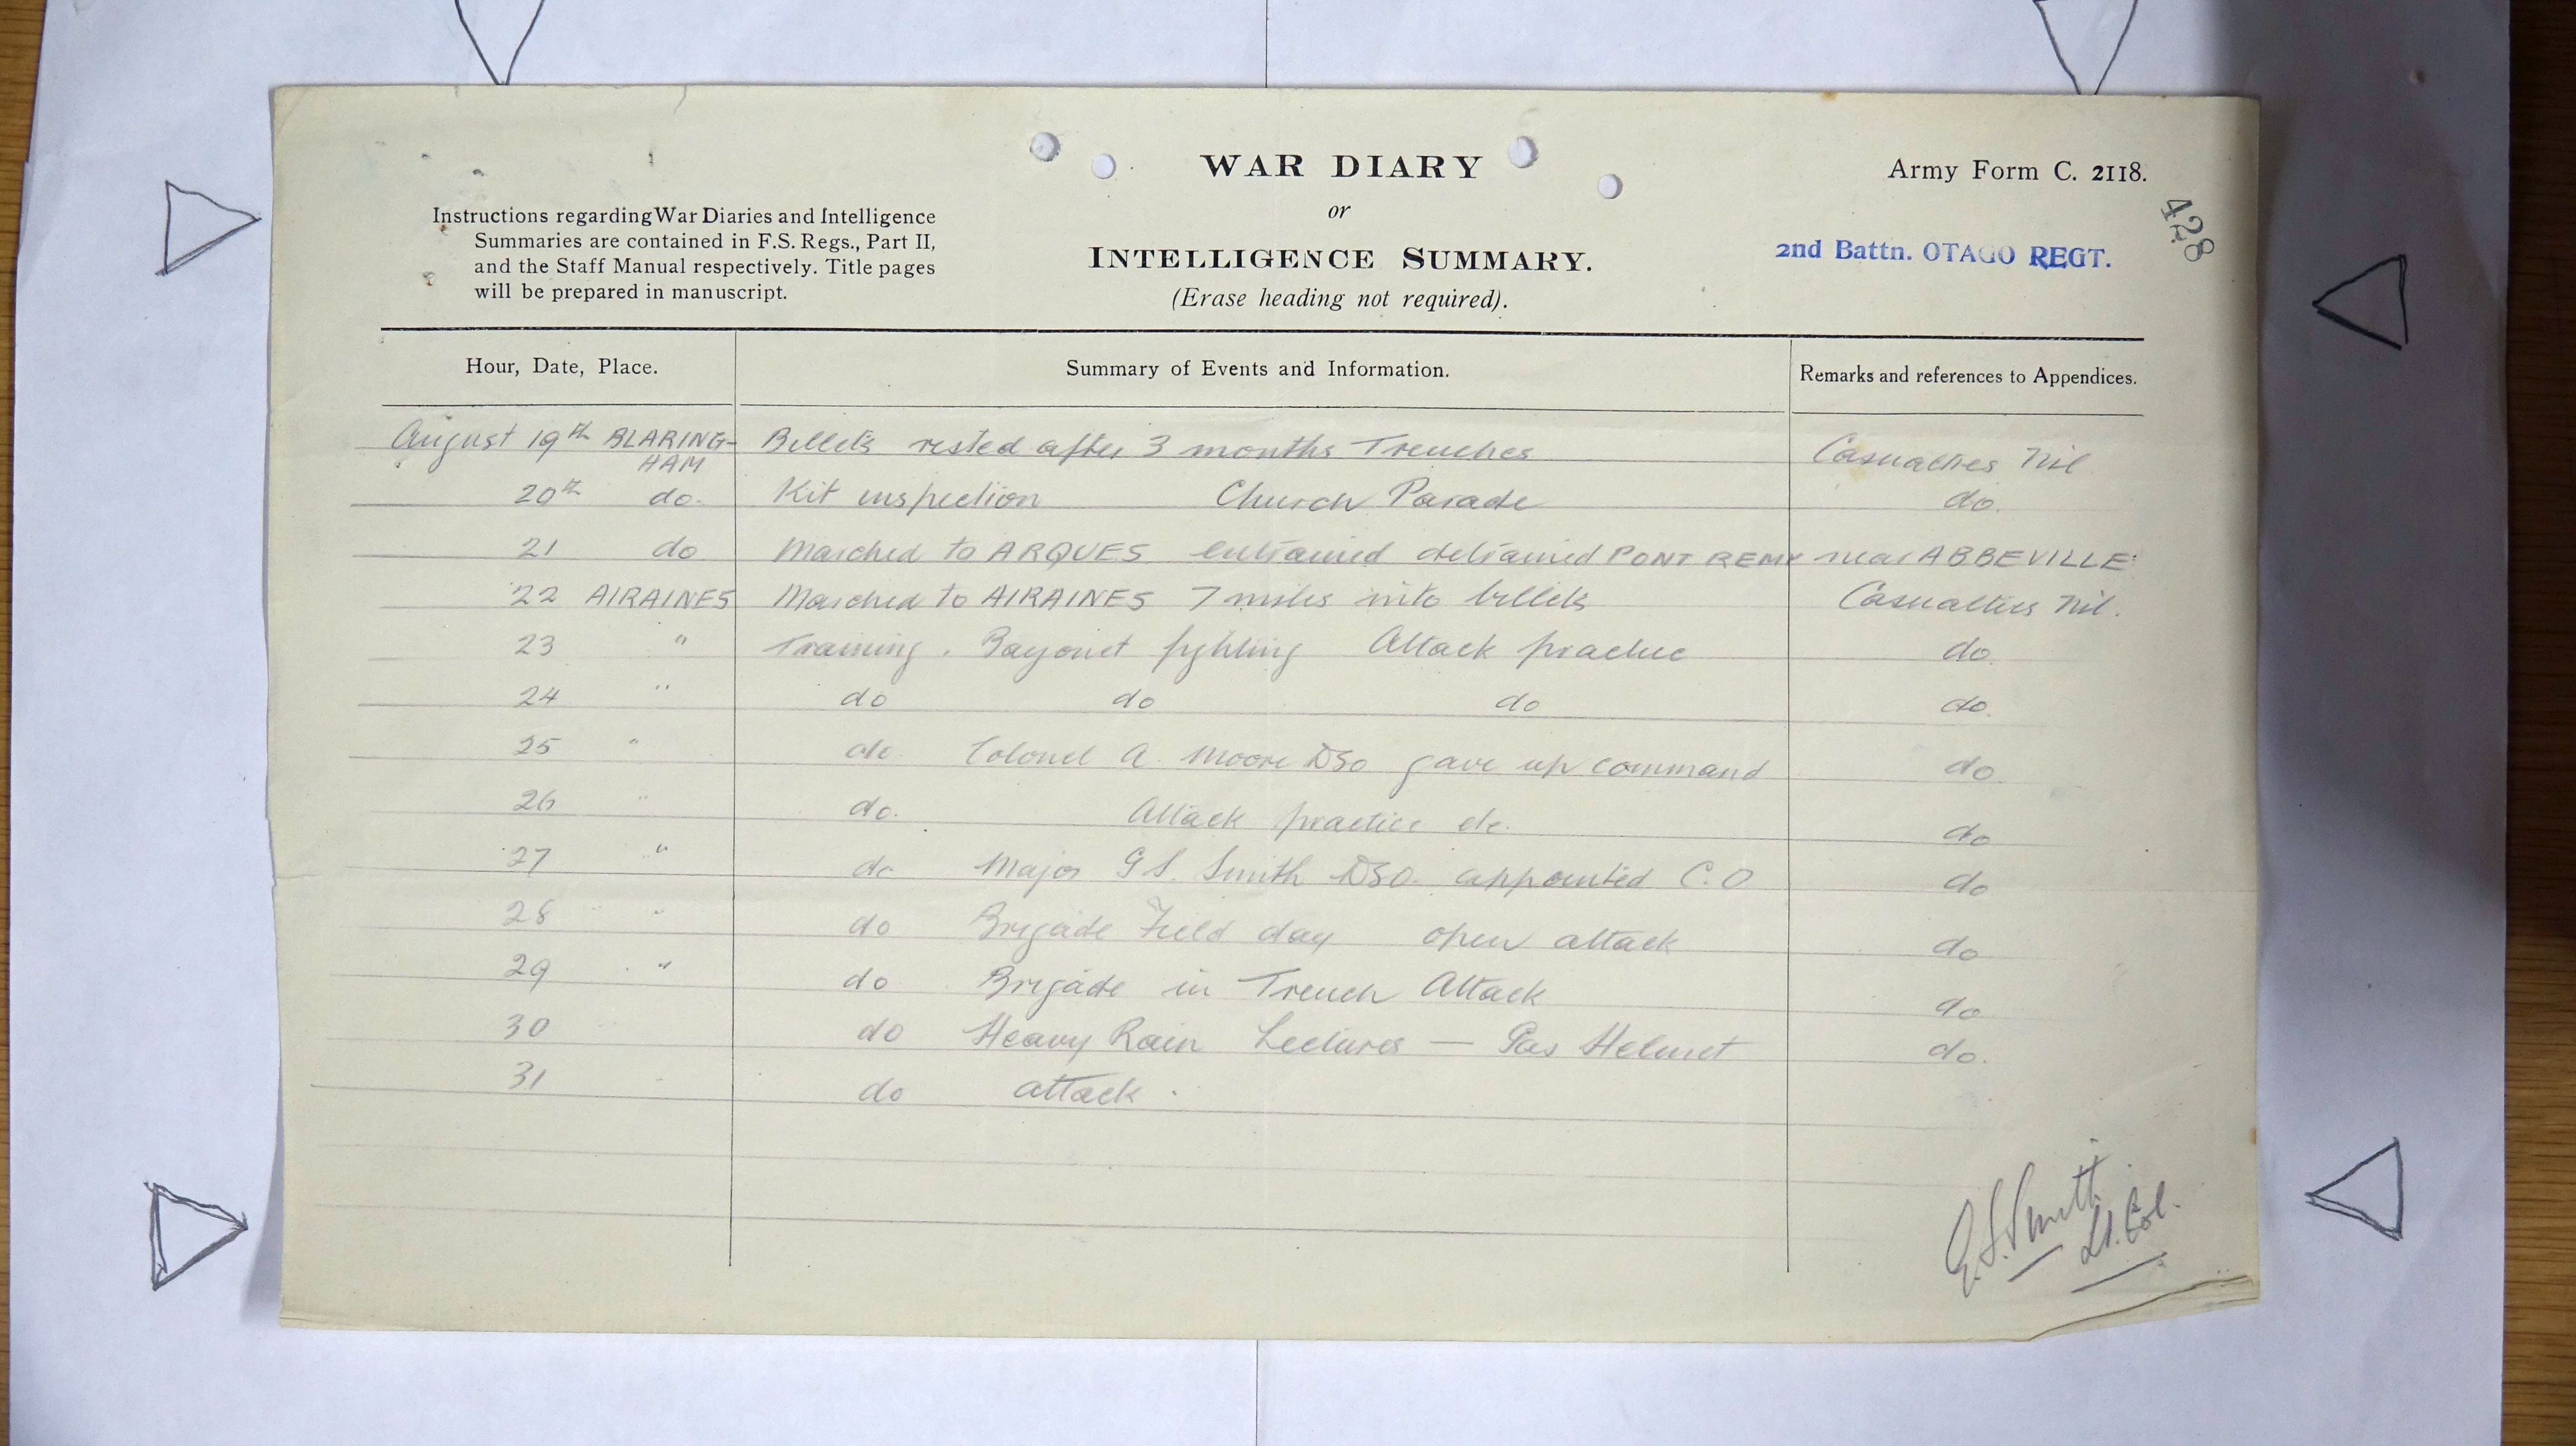 WAR DIARY
or
INTELLIGENCE SUMMARY.
(Erase heading not required).
Army Form C. 2118.
428
2nd Battn. OTAGO REGT.
Instructions regarding War Diaries and Intelligence
Summaries are contained in F.S. Regs., Part II,
and the Staff Manual respectively. Title pages
will be prepared in manuscript.
Hour, Date, Place. Summary of Events and Information. Remarks and references to Appendices.
August 19th BLARING-HAM Billets rested after 3 months Trenches Casualties Nil
20th do. Kit inspection Church Parade do.
21 do Marched to ARQUES entrained detrained PONT REMY near ABBEVILLE
22 AIRAINES Marched to AIRAINES 7 miles into billets Casualties Nil.
23 " Training. Bayonet fighting Attack practice do.
24 " do do do do.
25 " do. Colonel A. Moore DSO gave up command do.
26 " do. Attack practice etc. do
27 " do Major G S. Smith DSO. appointed C.O do
28 " do Brigade Field day open attack do
29 " do Brigade in Trench Attack do
30 do Heavy Rain Lectures — Gas Helmet do.
31 do attack.
G.S. Smith
Lt. Col.